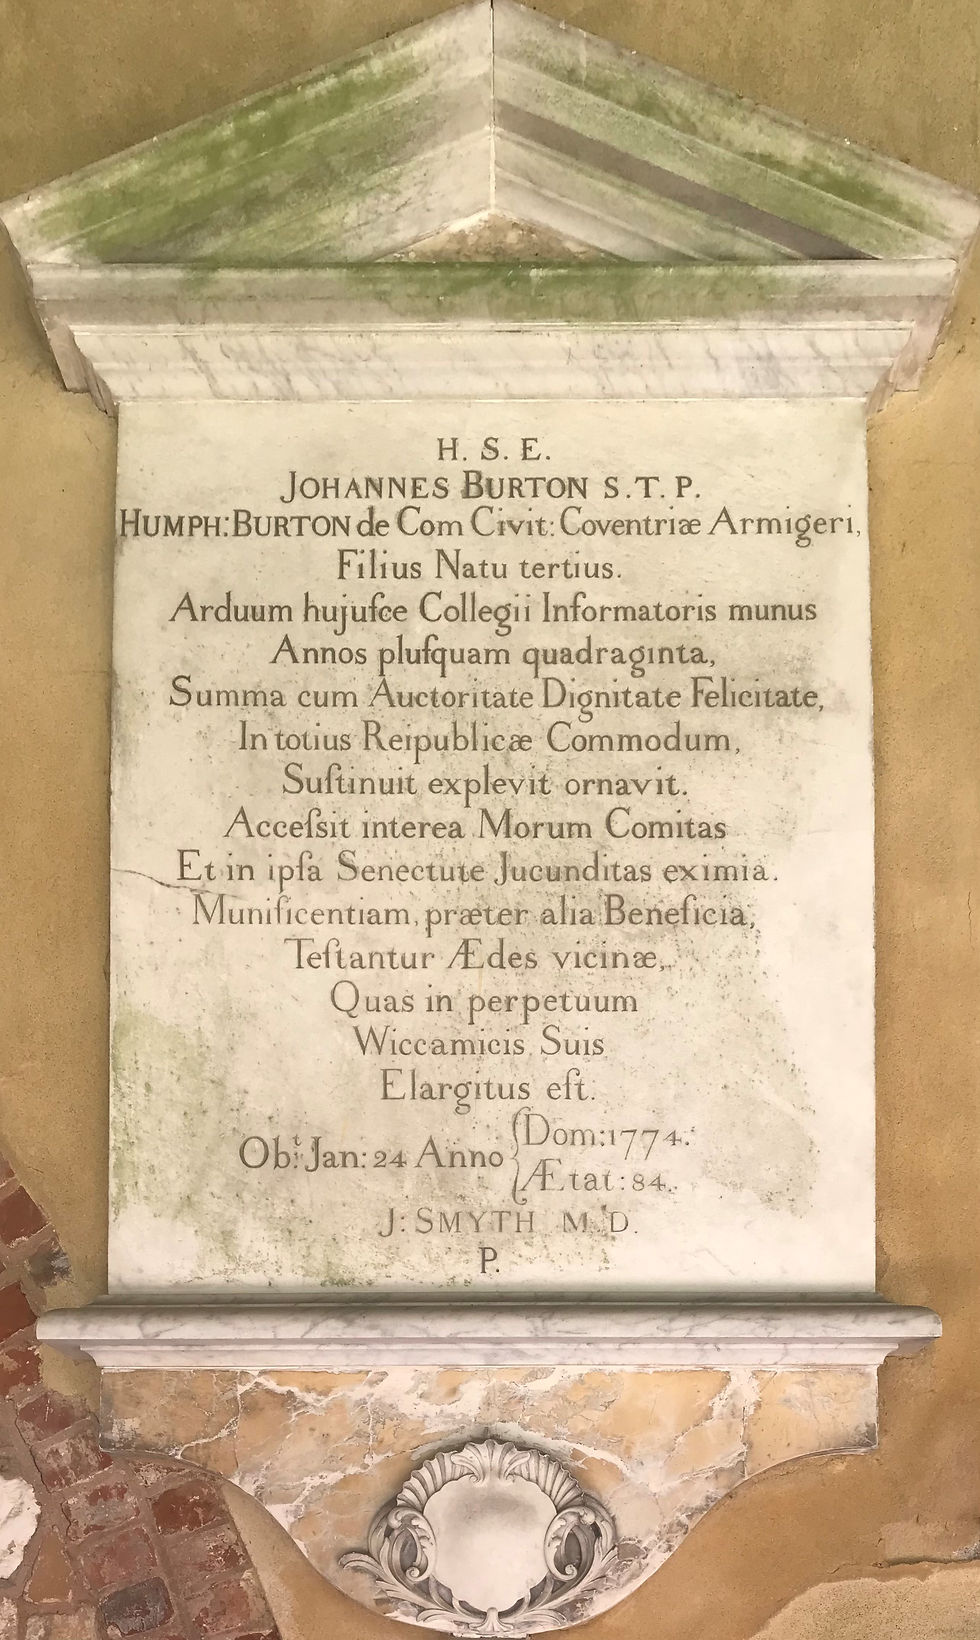 H. S. E.
JOHANNES BURTON S.T.P.
HUMPH: BURTON de Com Civit: Coventriæ Armigeri,
Filius Natu tertius.
Arduum hujuſce Collegii Informatoris munus
Annos pluſquam quadraginta,
Summa cum Auctoritate Dignitate Felicitate,
In totius Reipublicæ Commodum,
Suſtinuit explevit ornavit.
Acceſsit interea Morum Comitas
Et in ipſa Senectute Jucunditas eximia.
Munificentiam, præter alia Beneficia,
Teſtantur Ædes vicinæ,
Quas in perpetuum
Wiccamicis Suis
Elargitus eſt.
Ob:ᵗ Jan: 24 Anno { Dom: 1774.
Ætat: 84.
J: SMYTH M.D.
P.